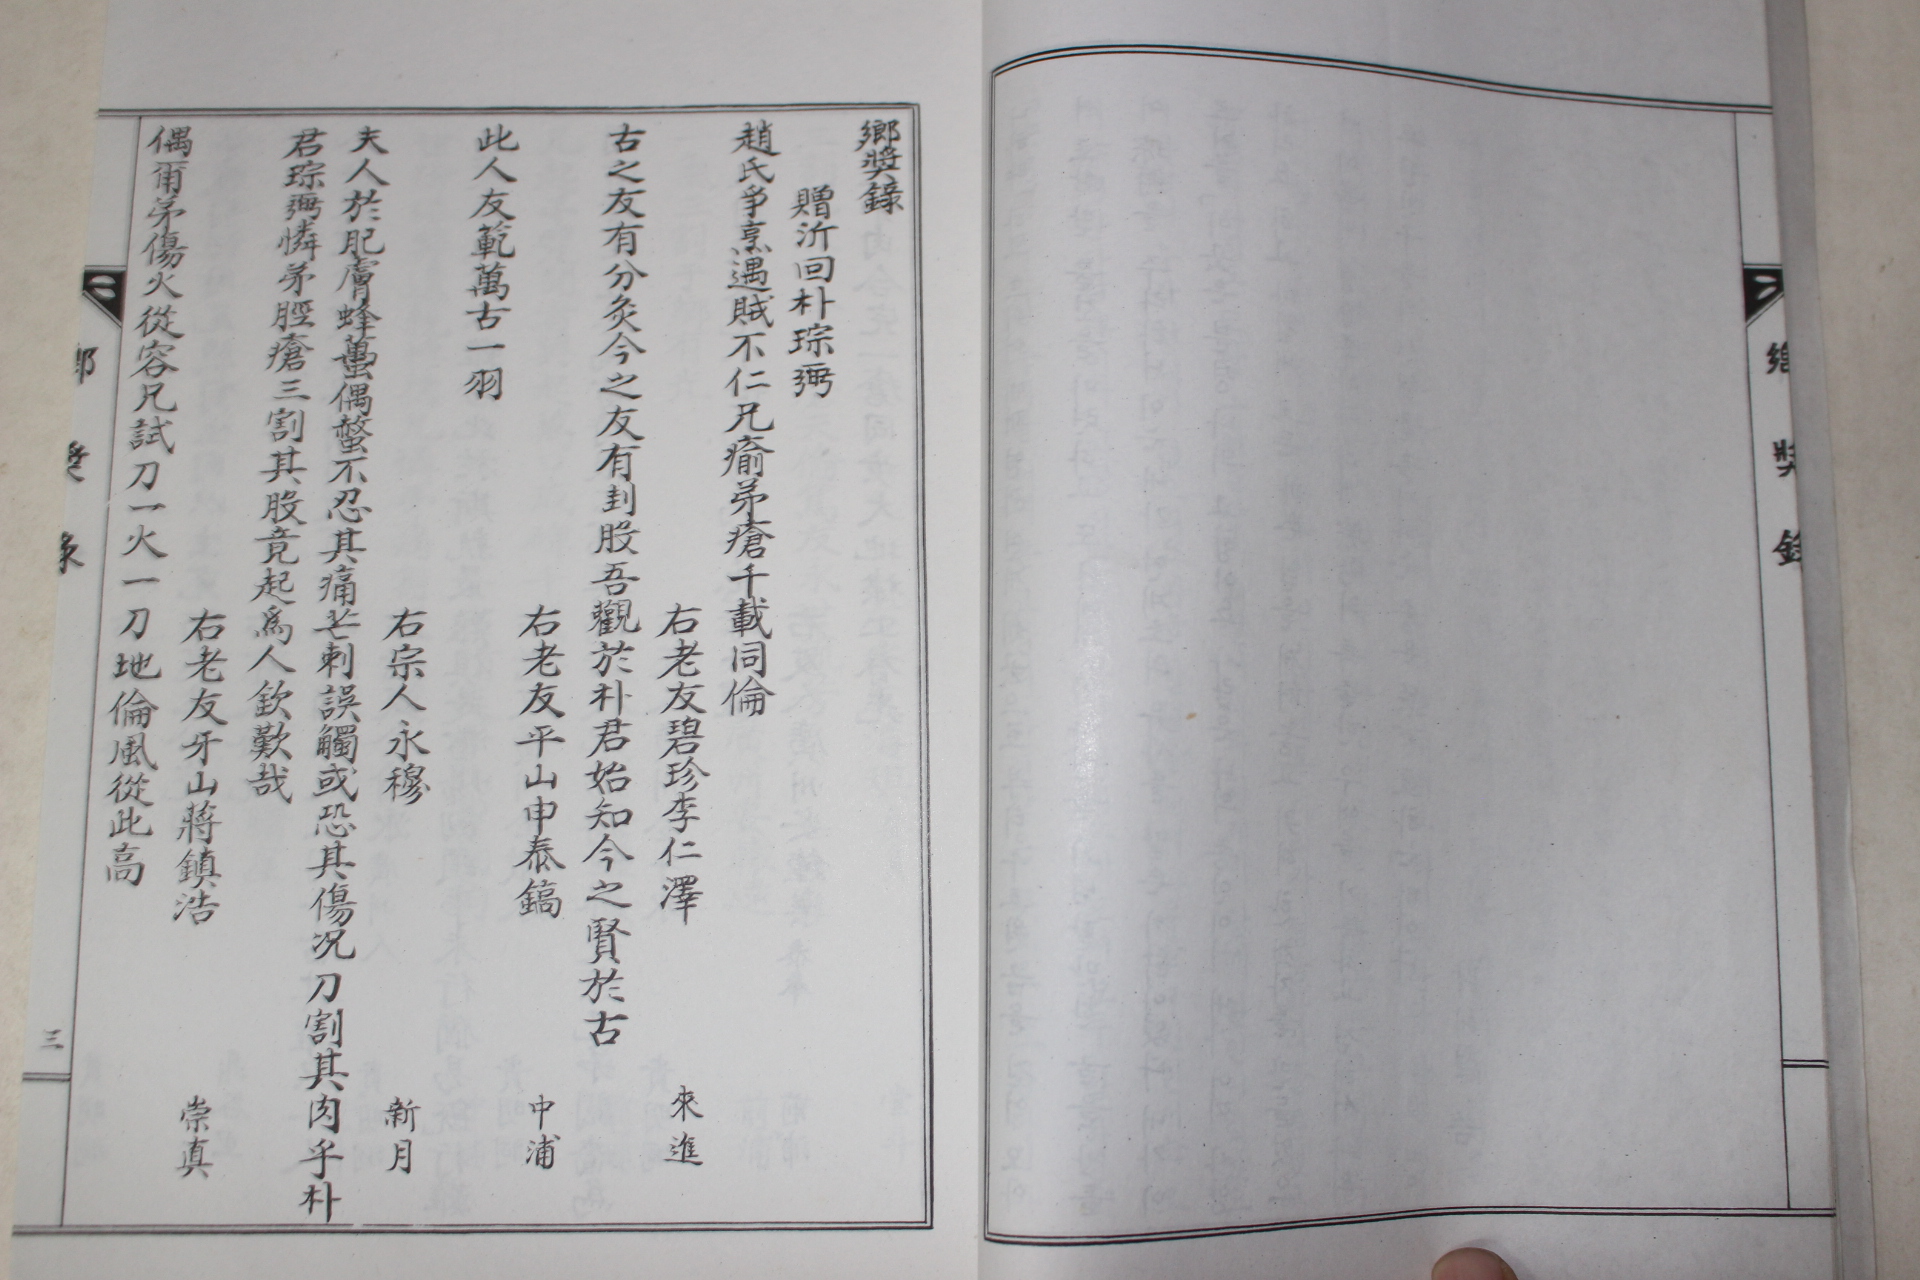 鄕奬錄
贈沂回朴琮彌
趙氏爭烹遇賊不仁兄痛弟瘡千載同倫
右老友碧珍李仁澤 來進
古之友有分灸今之友有刲股吾觀於朴君始知今之賢於古
右老友平山申泰鎬 中浦
此人友範萬古一羽
右宗人永穆 新月
夫人於肥膚蜂蠆偶螫不忍其痛芒刺誤觸或恐其傷况刀割其肉乎朴
君琮彌憐弟脛瘡三割其股竟起爲人欽歎哉
右老友牙山蔣鎮浩 崇真
偶爾弟傷火從容兄試刀一火一刀地倫風從此高
鄕奬錄
三
鄕奬錄